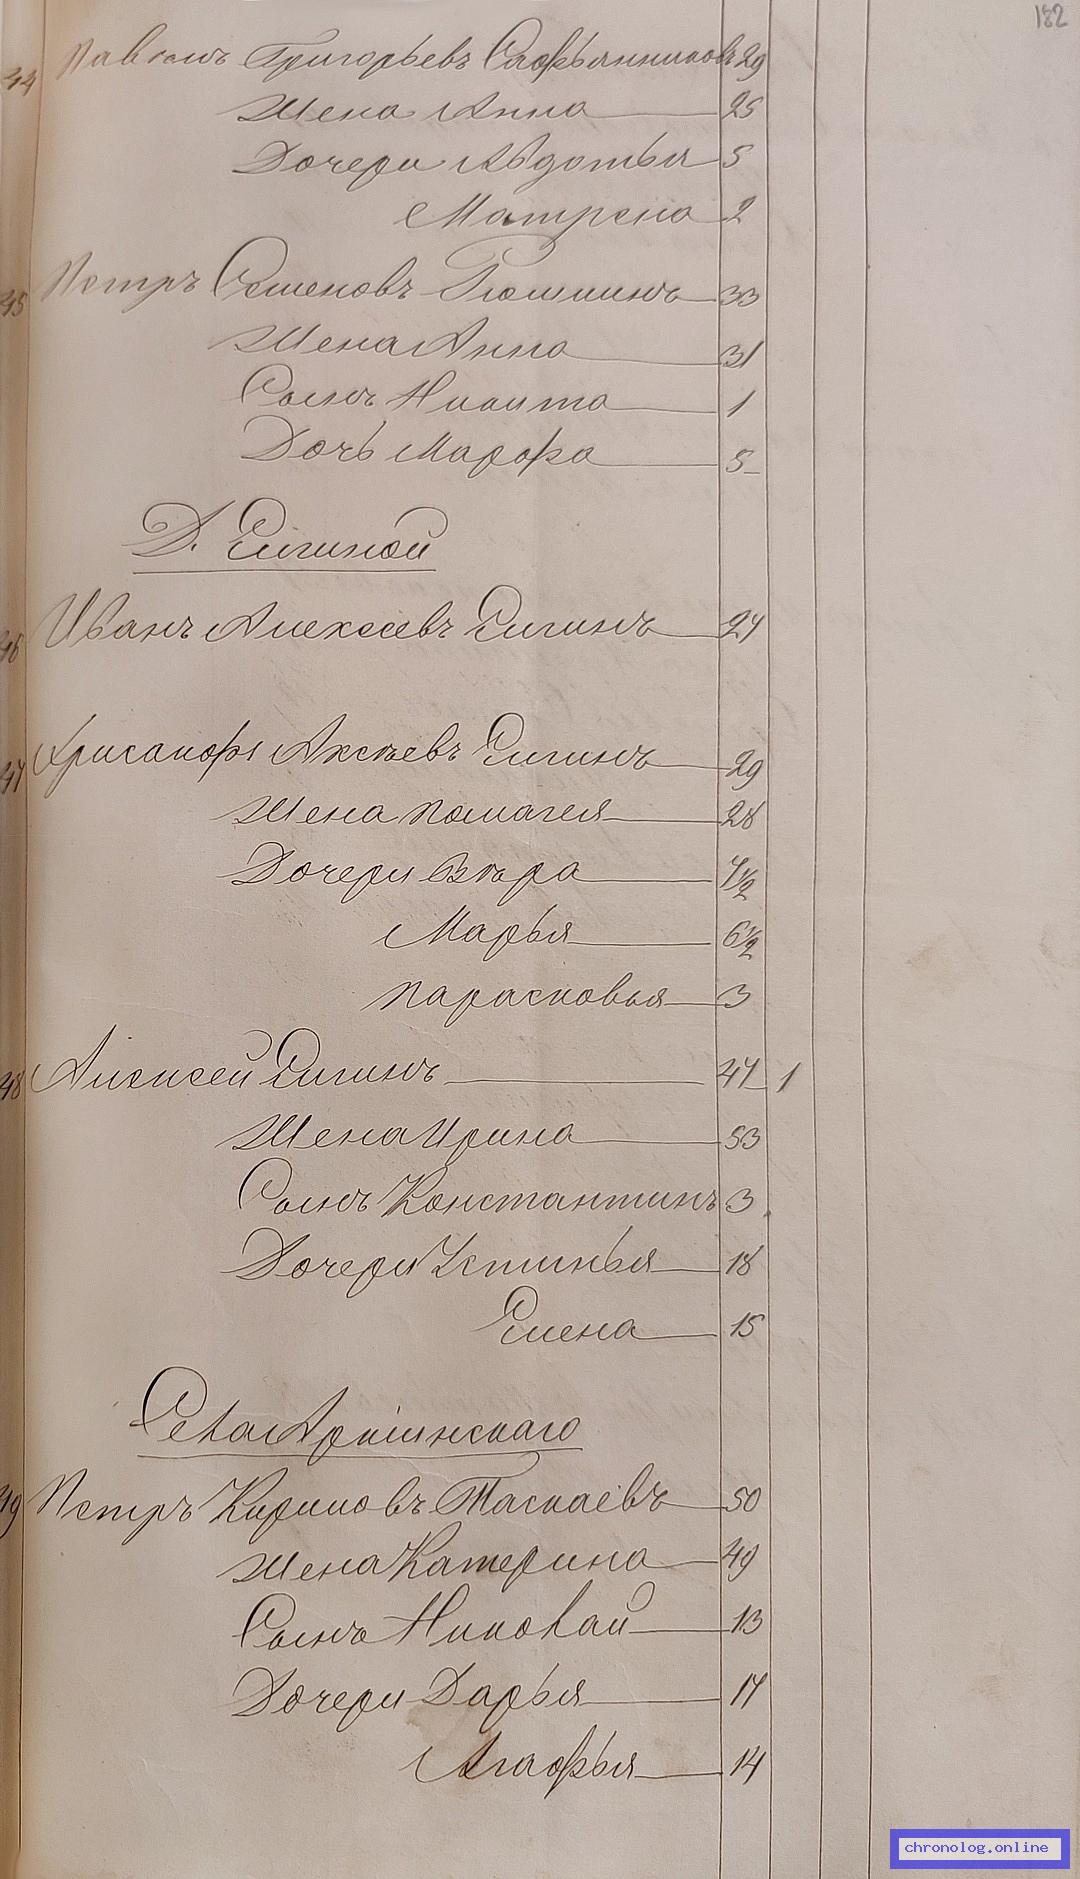 182
44 Павелъ Григорьевъ Сафьянниковъ 29
Жена Анна 25
Дочери Авдотья 5
Матрена 2
45 Петръ Семеновъ 33
Жена Анна 31
Сынъ Никита 1
Дочь Марфа 5
Д. Елгиной
46 Иванъ Алексеевъ Елгинъ 24
47 Хрисанфъ Алексѣевъ Елгинъ 29
Жена Пелагея 28
Дочери Вѣра 7½
Марья 6½
Парасковья 3
48 Алексей Елгинъ 47 1
Жена Ирина 53
Сынъ Константинъ 3
Дочери Устинья 18
Елена 15
Села
49 Петръ Кириловъ Таскаевъ 50
Жена Катерина 49
Сынъ Николай 13
Дочери Дарья 17
Агафья 14
chronolog.online